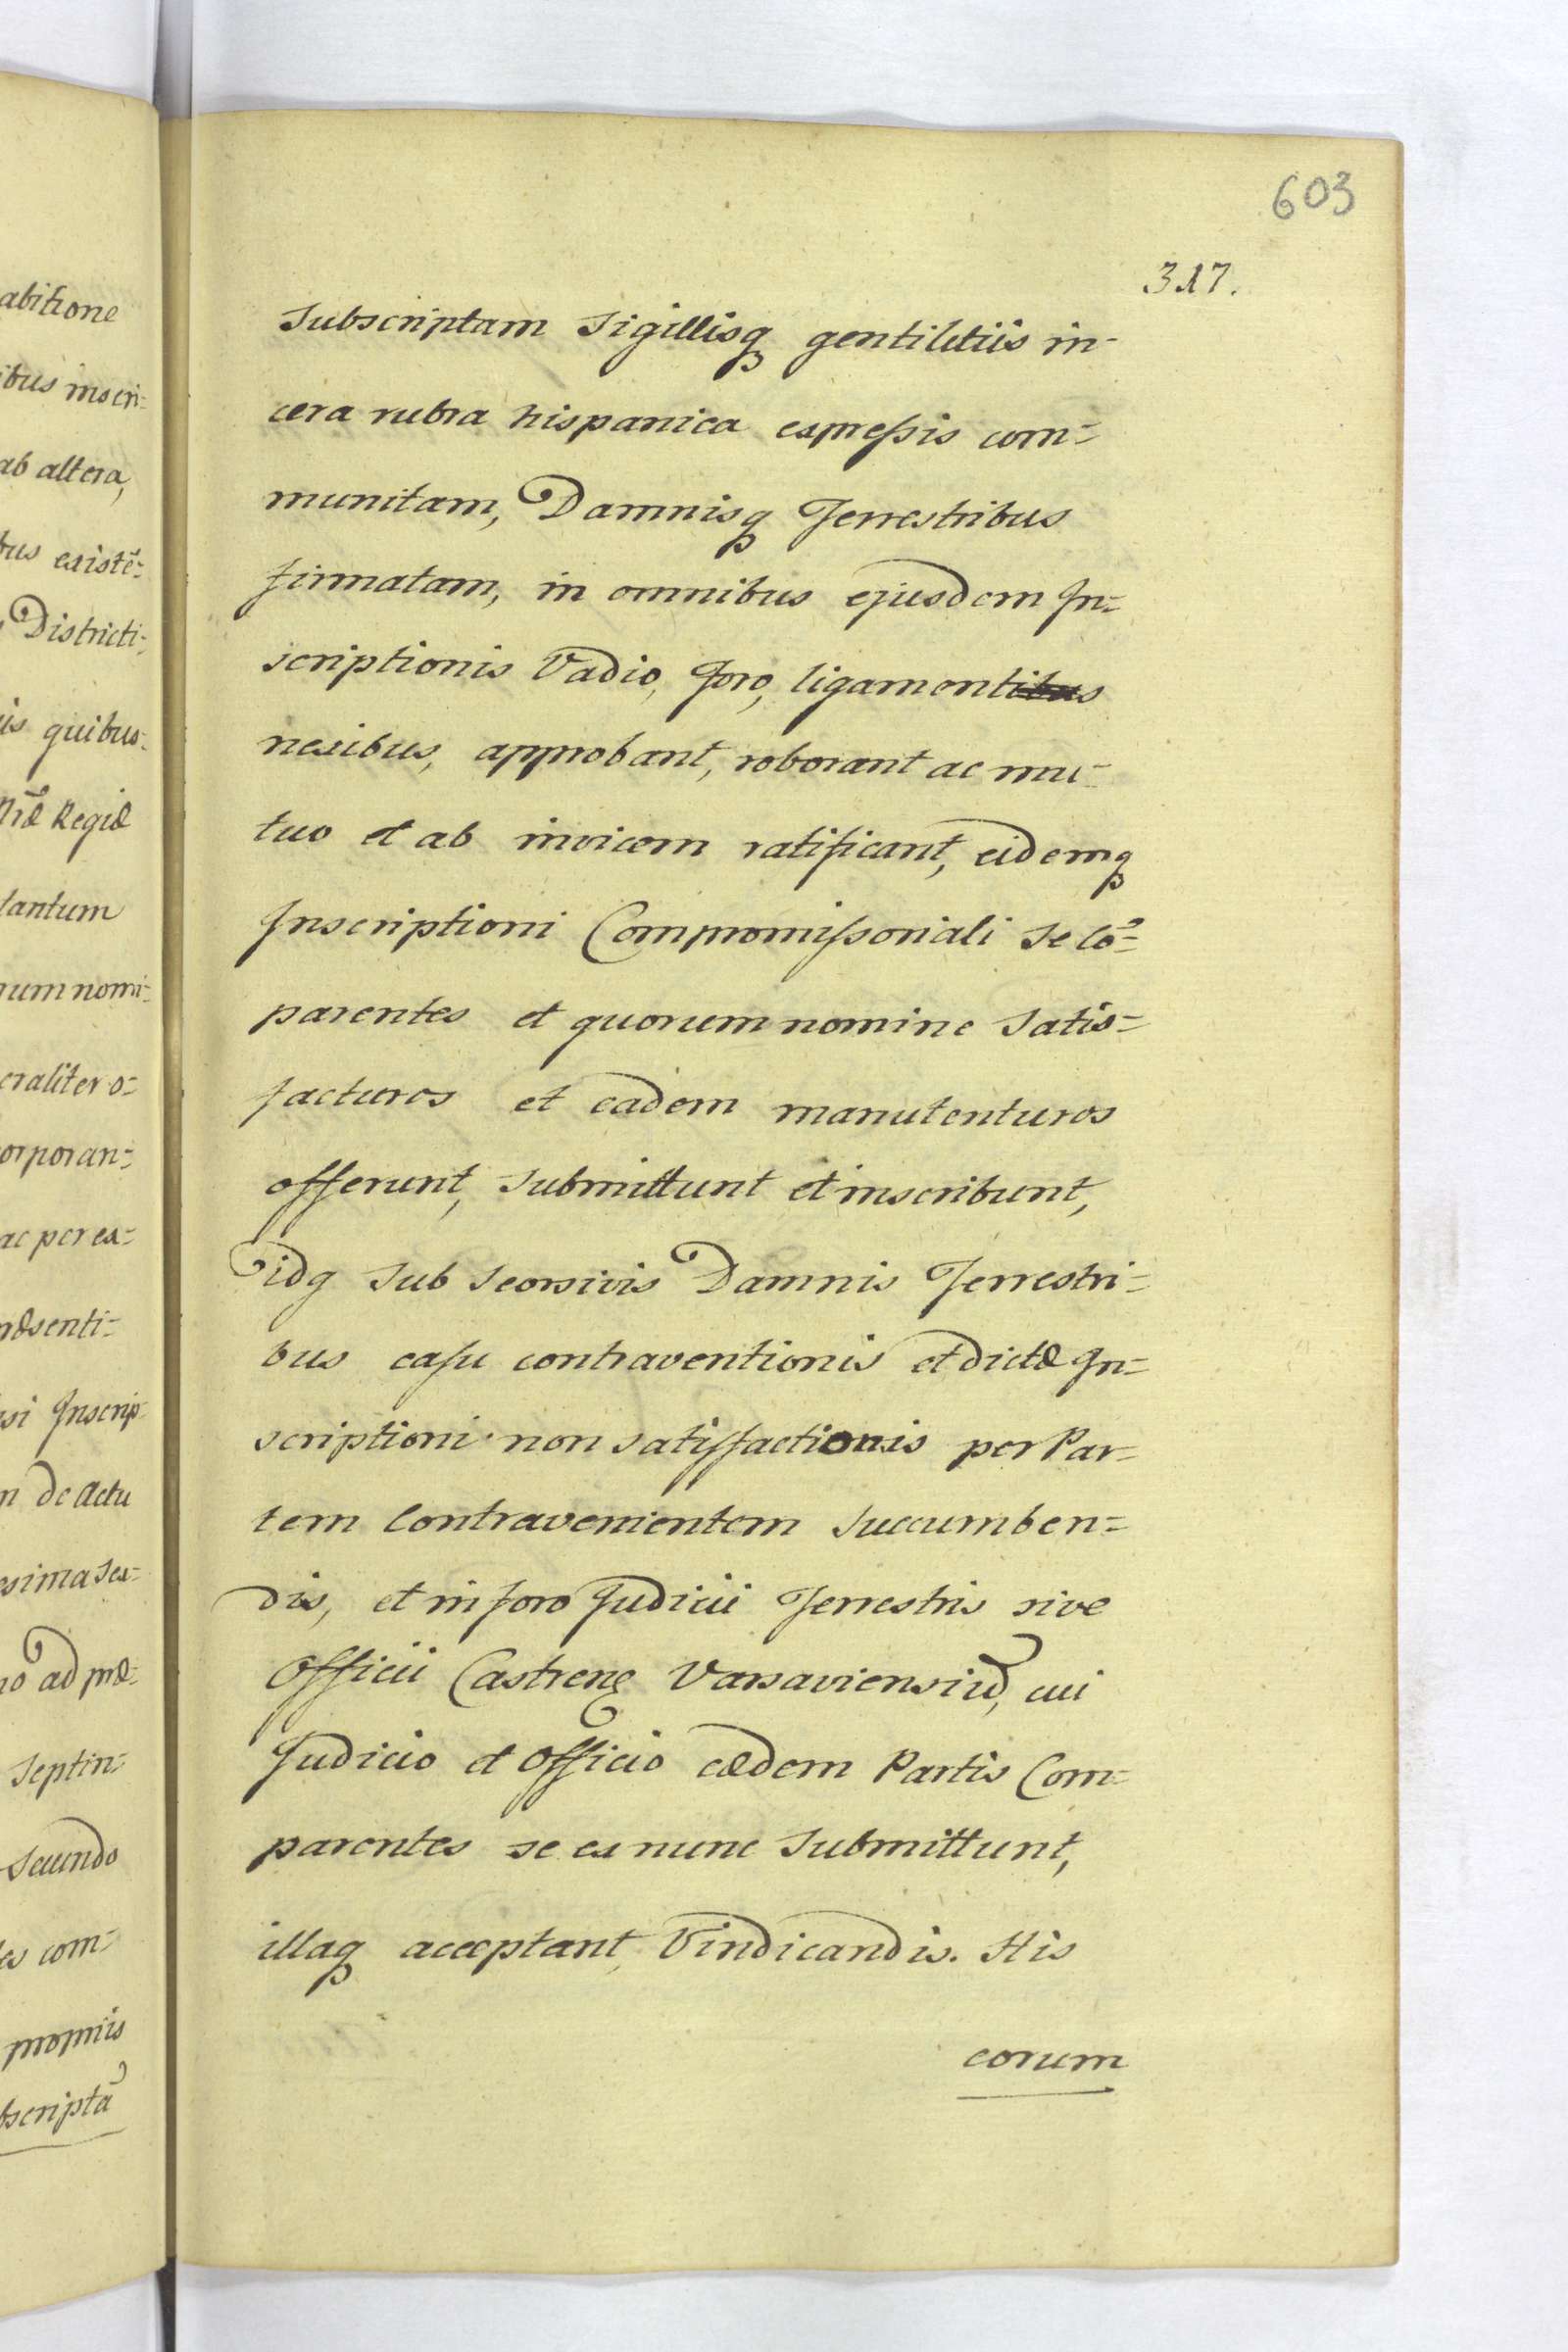 603
317.
Subscriptam Sigillisq gentilitiis in-
cera rubra hispanica expreſsis com=
munitam, Damnisq Terrestribus
firmatam, in omnibus ejusdem In=
scriptionis Vadio, Foro, ligamentibus
nexibus, approbant, roborant ac mu-
tuo et ab invicem ratificant, eidemq
Inscriptioni Compromiſsoriali se Cõ=
parentes et quorum nomine satis=
facturos et eadem manutenturos
offerunt, submittunt et inscribunt,
idq sub seorsivis Damnis Terrestri=
bus casu contraventionis et dictæ In=
scriptioni non satisfactionis per Par=
tem Contravenientem succumben=
dis, et in foro Judicii Terrestris sive
Officii Castren Varsaviensiũ, cui
Judicio et Officio eædem Partis Com=
parentes se ex nunc submittunt,
illaq acceptant, Vindicandis. His
eorum
abitione
ibus inscri=
ab altera,
bus existẽ=
Districti=
is quibus=
Regiæ
tantum
num nomi=
eraliter o=
orporan=
ac per ex=
ræsenti=
si Inscrip=
n de Actu
esima sex=
no ad præ=
Septin=
Secundo
les com=
propriis
bscriptã